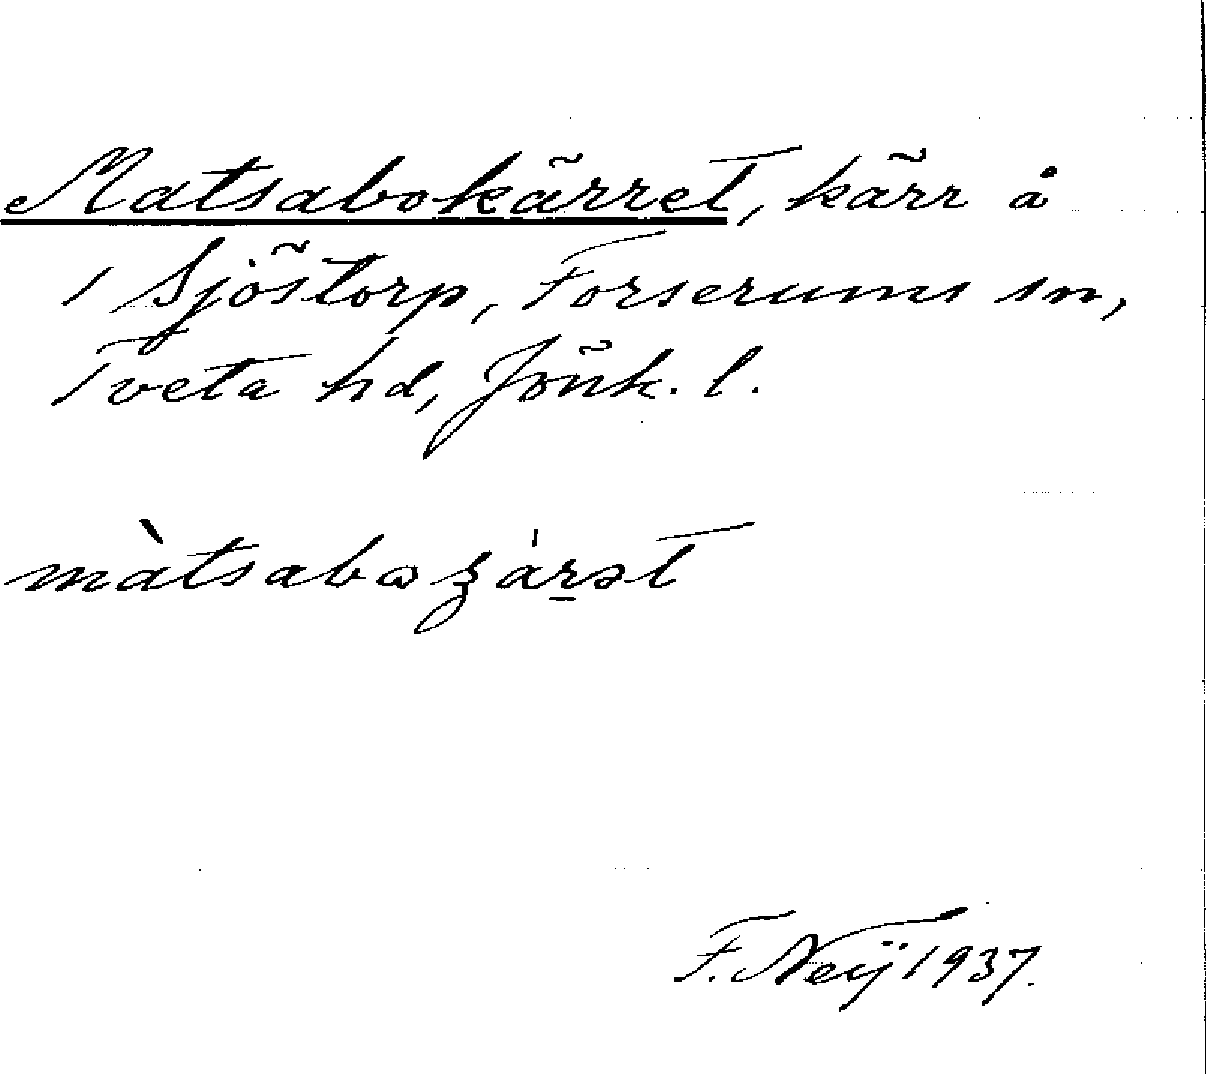 Matsabokärret, kärr å
1 Sjöstorp, Forserums sn,
Tveta hd, Jönk. l.
màtsabꞷʒárət
F. Neij 1937.